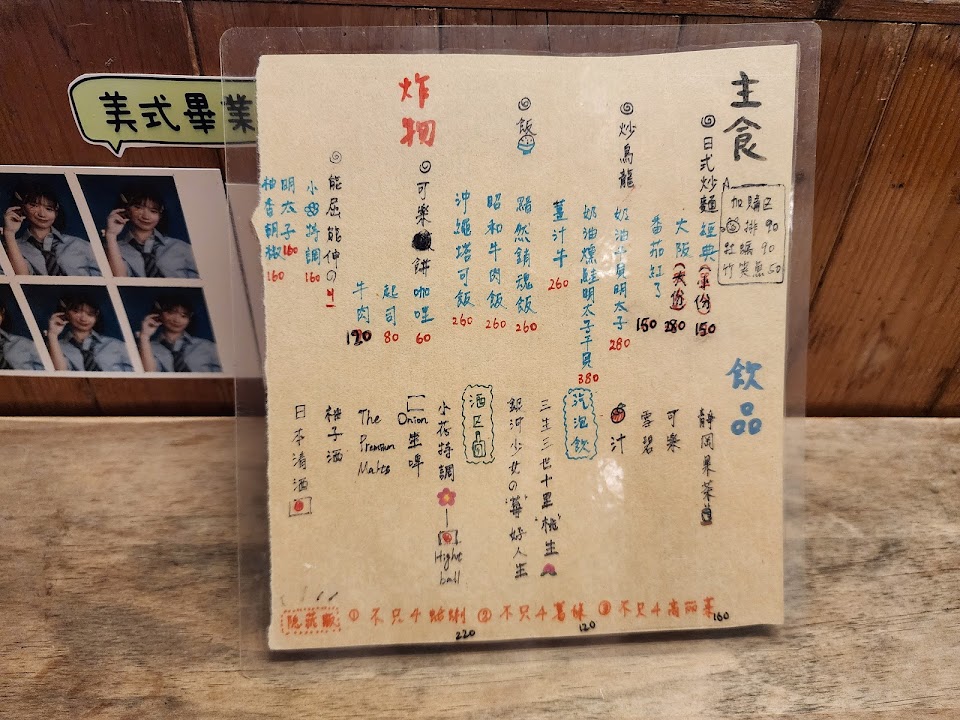 美式畢業
主食
日式炒麵
經典(單份) 150
大阪(大份) 280
番茄紅了 150
加購区
排 90
牡蠣 90
竹筴魚 50
炒烏龍
奶油干貝明太子 280
奶油燻鮭明太子干貝 380
飯
薑汁牛 260
黯然銷魂飯 260
昭和牛肉飯 260
沖繩塔可飯 260
炸物
可樂餅
咖哩 60
起司 80
牛肉 120
能屈能伸の
小花特調 160
明太子 160
柚香胡椒 160
飲品
靜岡果菜
可樂
雪碧
汁
汽泡飲
三生三世十里"桃"生
銀河少女の"莓"好人生
酒区
小花特調
Hight ball
Onion生啤
The Premium Malts
柚子酒
日本清酒
隐蔽版 ① 不只4 ② 不只4薯條 ③ 不只4高丽菜
220
120
160